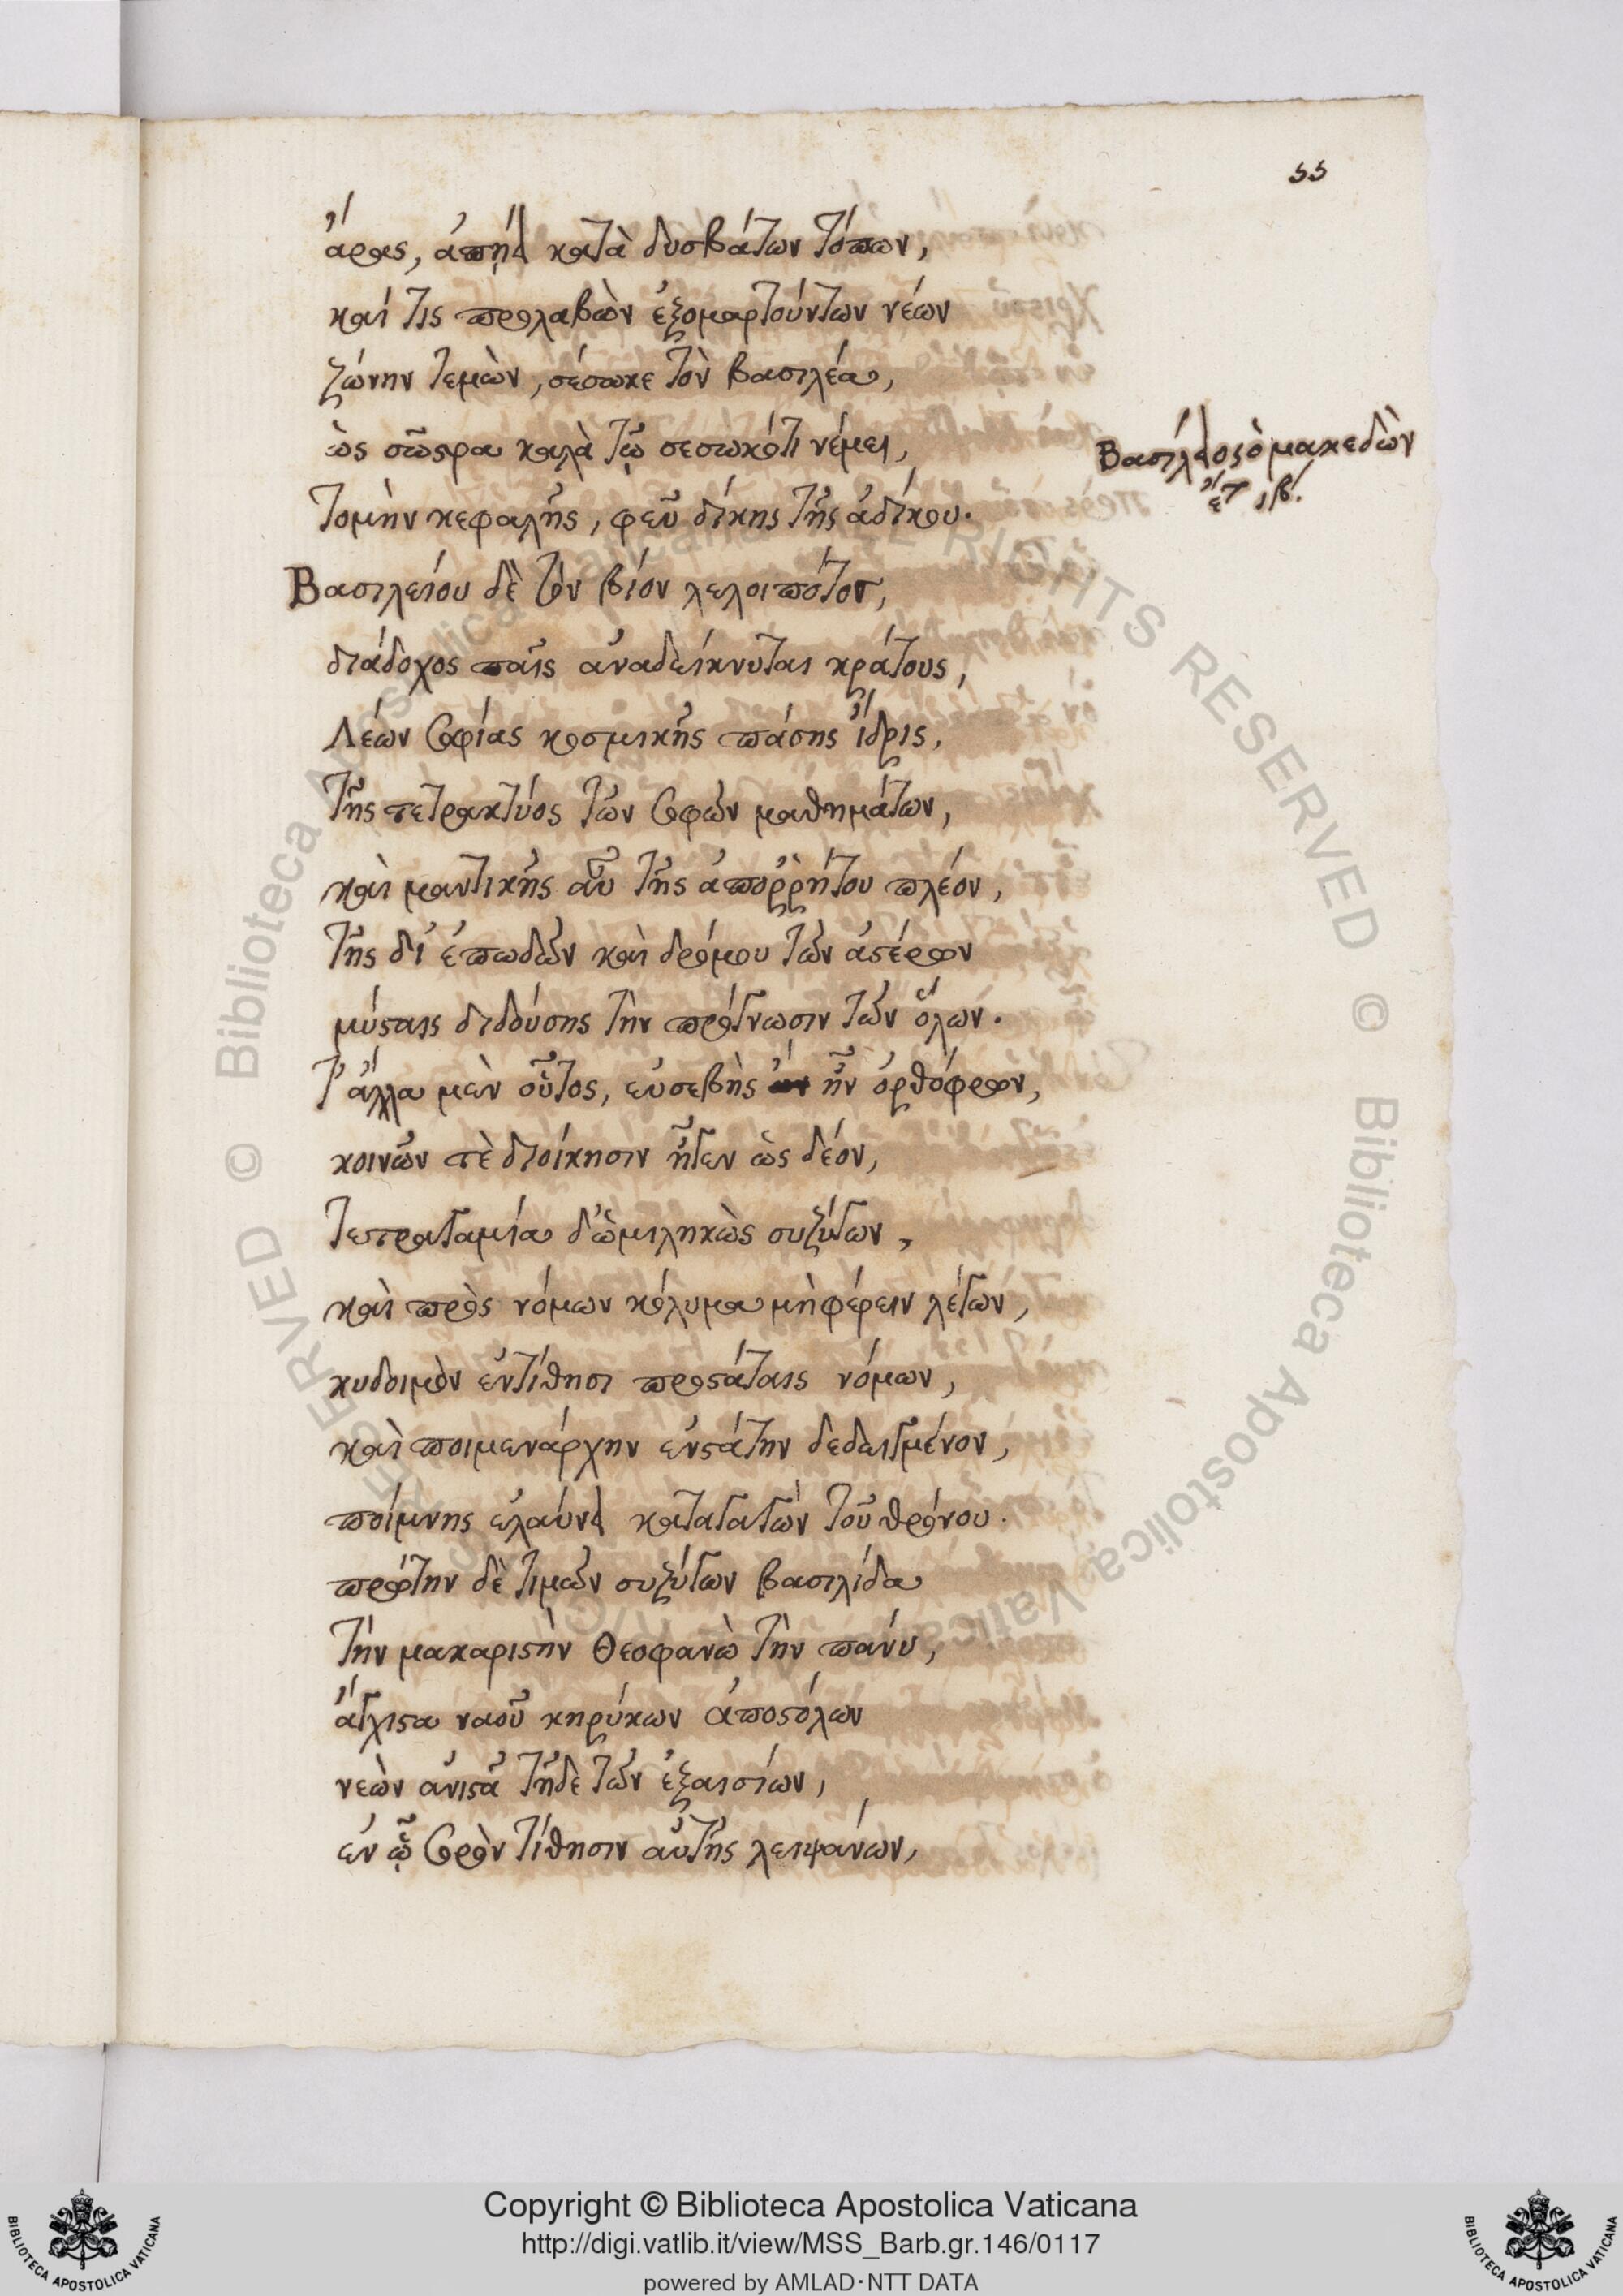 55
ἄρας, ἀπῄει κατὰ δυσβάτων τόπων,
καί τις προλαβὼν ἐξομαρτούντων νέων
ζώνην τεμὼν, σέσωκε τὸν βασιλέα,
ὡς σῶστρα καλὰ τῷ σεσωκότι νέμει,
Βασίλειος ὁ μακεδὼν
ἔτ ιβ.
τομὴν κεφαλῆς, φεῦ δίκης τῆς ἀδίκου.
Βασιλείου δὲ τὸν βίον λελοιπότος,
διάδοχος παῖς ἀναδείκνυται κράτους,
Λέων σοφίας κοσμικῆς πάσης ἴδρις,
τῆς τετρακτύος τῶν σοφῶν μαθημάτων,
καὶ μαντικῆς αὖ τῆς ἀποῤῥήτου πλέον,
τῆς δι' ἐπωδῶν καὶ δρόμου τῶν ἀστέρων
μύσταις διδούσης τὴν πρόγνωσιν τῶν ὅλων.
Τ' ἄλλα μὲν οὗτος, εὐσεβὴς ἦν ὀρθόφρων,
κοινῶν τὲ διοίκησιν ἦγεν ὡς δέον,
τετραγαμία δ' ὡμιληκὼς συζύγων,
καὶ πρὸς νόμων κόλυμα μὴ φέρειν λέγων,
κυδοιμὸν ἐντίθησι προστάταις νόμων,
καὶ ποιμενάρχην ἐνστάτην δεδειγμένον,
ποίμνης ἐλαύνει καταγαγὼν τοῦ θρόνου.
πρώτην δὲ τιμῶν συζύγων βασιλίδα
τὴν μακαριστὴν Θεοφανὼ τὴν πάνυ,
ἄγχιστα ναοῦ κηρύκων ἀποστόλων
νεὼν ἀνιστᾶ τῇδε τῶν ἐξαισίων,
ἐν ᾧ σορὸν τίθησιν αὐτῆς λειψάνων,
Copyright © Biblioteca Apostolica Vaticana
http://digi.vatlib.it/view/MSS_Barb.gr.146/0117
powered by AMLAD·NTT DATA
BIBLIOTECA APOSTOLICA VATICANA
BIBLIOTECA APOSTOLICA VATICANA